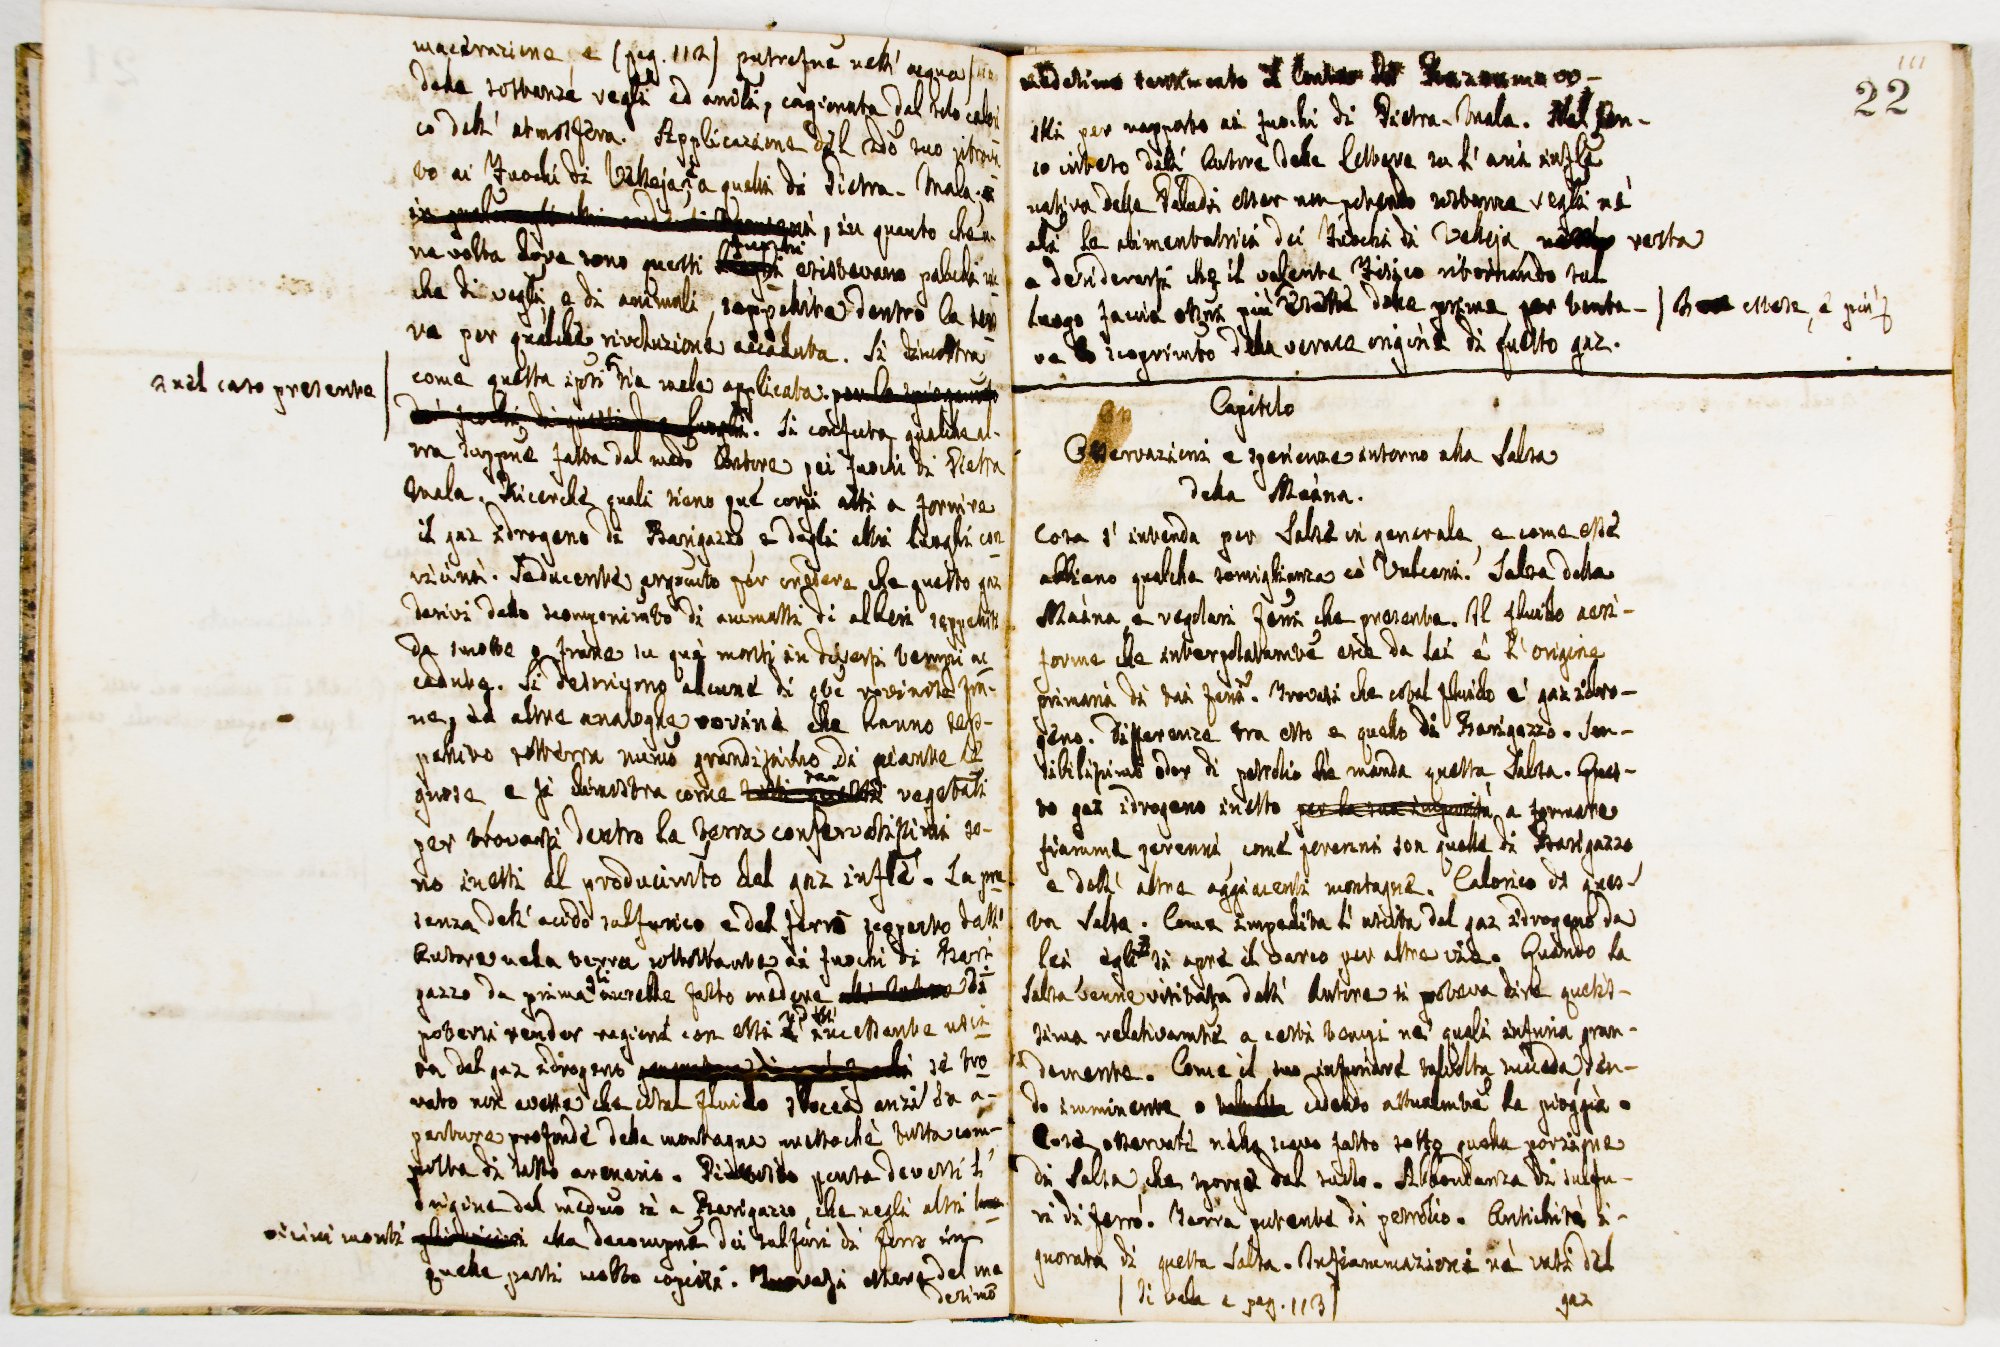 macerazione e (pag. 112) putrefne nell' acqua
delle sostanze vegli ed anili, cagionata dal solo calori
co dell' atmosfera. Applicazione del
vo ai Fuochi di Velleja, a quelli di Pietra-Mala.
in quanto che u-
na volta dove sono questi esistevano
che di vegli, e di animali, seppellite dentro la
ra per qualche rivoluzione accaduta. Si dimostra
a nel caso presente |
come questa ipsi sia male applicata.
Si confuta qualche al-
tra suppne fatta dal medo Autore pei fuochi di Pietra
Mala. Ricerche quali sieno que' corpi atti a fornire
il gaz idrogeno di Barigazzo, e degli altri luoghi con
vicini. Seducente argomto per credere che questo gaz
derivi dallo scomponimto di ammassi di alberi seppelliti
da smosse o frane su que' monti in diversi tempi ac
cadute. Si descrivono alcune di qte rovinose fra-
ne, ed altre analoghe rovine che hanno sep-
pellito sotterra numo grandissimo di piante le
gnose, e si dimostra come tai vegetali
per trovarsi dentro la terra conservatissimi so-
no inetti al producimto del gaz infle. La pre
senza dell' acido solfurico e del ferro scoperto dall'
Autore nella terra sottostante ai fuochi di Bari
gazzo da prima gli avrebbe fatto vedere di
potersi render ragione con essi dell' incessante usci
ta del gaz idrogeno se tro
vato non avesse che cotal fluido sbocca anzi da a-
perture profonde della montagna mettoché tutta com-
posta di sasso arenario. Piuttosto pensa doversi l'
origine del medmo sì a Barigazzo, che negli altri
vicini monti
alla decompne dei solfuri di ferro in
quelle parti molto copiosi. Trovasi essere del me
desimo
111
22
medesimo sentimento il
per rapporto ai fuochi di Pietra-Mala. Nel sen-
so inteso dall' Autore delle Lettere su l' aria infle
nativa delle Paludi esser non potendo sostanze vegli né
ali le alimentatrici dei Fuochi di Velleja resta
a desiderarsi che il valente Fisico ritornando sul
luogo faccia ossni più esatte delle prime per tenta-
| esteso, e più
re lo scoprimto della verace origine di questo gaz.
Capitolo
Osservazioni e sperienze intorno alla Salsa
della Maina.
Cosa s' intenda per Salse in generale, e come esse
abbiano qualche somiglianza co' Vulcani. Salsa della
Maina, e regolari feni che presenta. Il fluido aeri-
forme che interpolatamte esce da lei è l' origine
primaria di tai feni. Trovasi che cotal fluido è gaz idro-
geno. Differenze tra esso e quello di Barigazzo. Sen-
sibilissimo odor di petrolio che manda questa Salsa. Ques-
to gaz idrogeno inetto per la sua impurità a formare
fiamme perenni, come perenni son quelle di Barigazzo
e dell' altre aggiacenti montagne. Calorico di ques-
ta Salsa. Come impedita l' uscita del gaz idrogeno da
lei egli si apre il varco per altre vie. Quando la
Salsa venne visitata dall' Autore si poteva dire quetis-
sima relativamte a certi tempi ne' quali infuria gran-
demente. Come il suo infuriare talvolta succeda stan-
do imminente o cadendo attualmte la pioggia.
Cose osservate nello scavo fatto sotto quella porzione
di Salsa che sporge dal suolo. Abbondanza di solfu-
ri di ferro. Terra putente di petrolio. Antichità i-
gnorata di questa Salsa. Infiammazioni né usi del
| Si vada a pag. 113 |
gaz